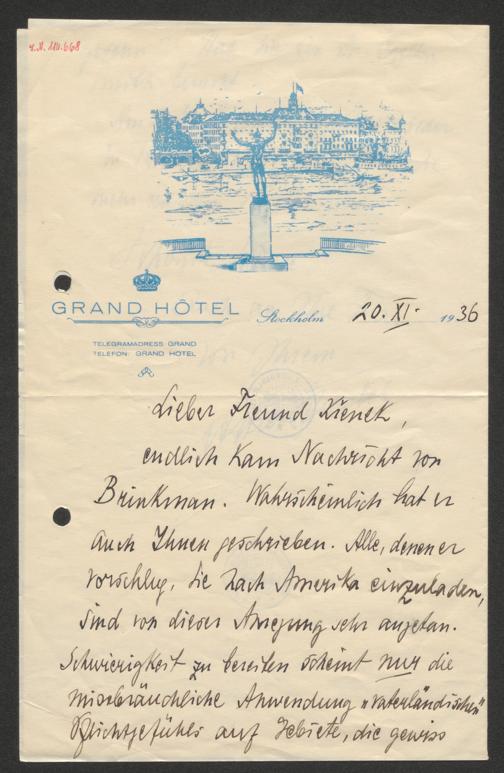 GRAND HÔTEL
Stockholm 20. XI. 1936
TELEGRAMADRESS: GRAND
TELEFON: GRAND HOTEL
Lieber Freund Krenek,
endlich kam Nachricht von
Brinkman. Wahrscheinlich hat er
auch Ihnen geschrieben. Alle, denen er
vorschlug, Sie nach Amerika einzuladen,
sind von dieser Anregung sehr angetan.
Schwierigkeit zu bereiten scheint nur die
missbräuchliche Anwendung "vaterländischen"
Pflichtgefühls auf Gebiete, die gewiss